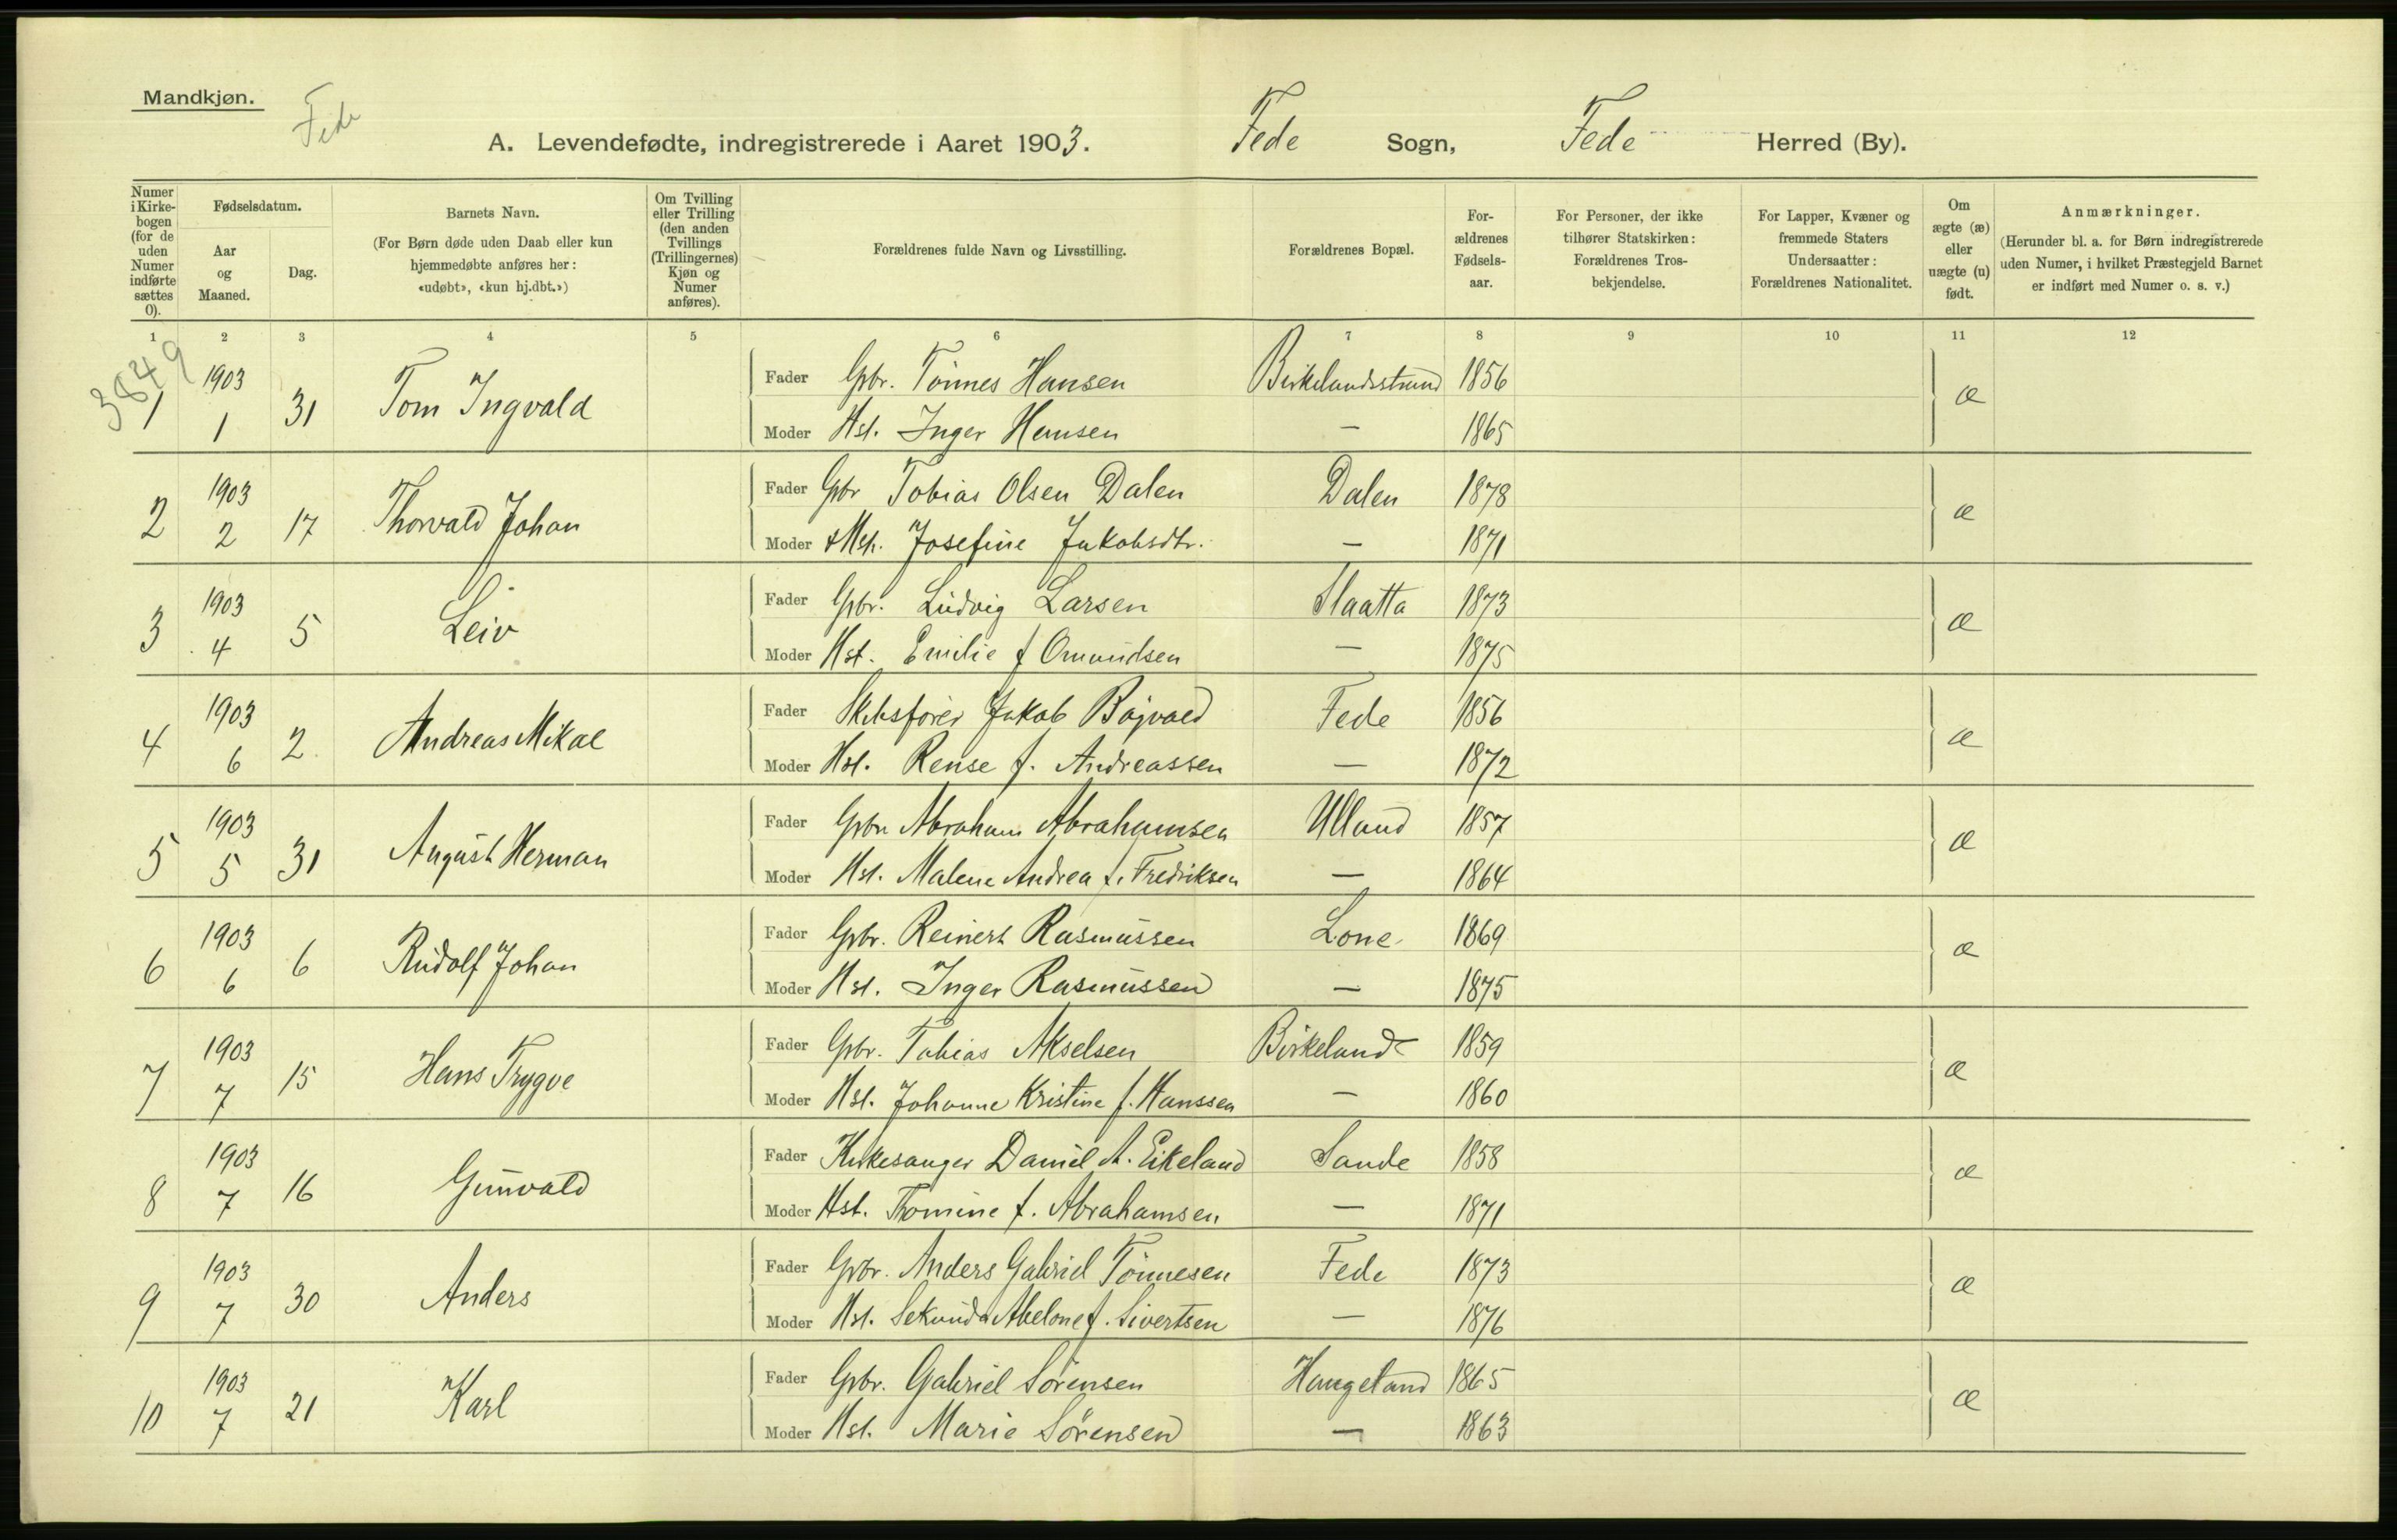 Mandkjøn.
Fede
A. Levendefødte, indregistrerede i Aaret 1903. Fede Sogn, Fede Herred (By).
Numer i Kirkebogen (for de uden Numer indførte sættes 0).
Fødselsdatum.
Aar og Maaned.
Dag.
Barnets Navn.
(For Børn døde uden Daab eller kun
hjemmedøbte anføres her:
«udøbt», «kun hj.dbt.»)
Om Tvilling
eller Trilling
(den anden
Tvillings
(Trillingernes)
Kjøn og
Numer
anføres).
Forældrenes fulde Navn og Livsstilling.
Forældrenes Bopæl.
For-
ældrenes
Fødsels-
aar.
For Personer, der ikke
tilhører Statskirken:
Forældrenes Tros-
bekjendelse.
For Lapper, Kvæner og
fremmede Staters
Undersaatter:
Forældrenes Nationalitet.
Om
ægte (æ)
eller
uægte (u)
født.
Anmærkninger.
(Herunder bl. a. for Børn indregistrerede
uden Numer, i hvilket Præstegjeld Barnet
er indført med Numer o. s. v.)
1 2 3 4 5 6 7 8 9 10 11 12
3849
1 1903 1 31 Tom Ingvald æ
Fader Gbr. Tönnes Hansen Birkelandsstrand 1856
Moder Hst. Inger Hansen — 1865
2 1903 2 17 Thorvald Johan æ
Fader Gbr Tobias Olsen Dalen Dalen 1878
Moder Hst. Josefine Jakobsdtr. — 1871
3 1903 4 5 Leiv æ
Fader Gbr. Ludvig Larsen Slaatta 1873
Moder Hst. Emilie f Omundsen — 1875
4 1903 6 2 Andreas Mikal æ
Fader Skibsförer Jakob Bøjvald Fede 1856
Moder Hst. Rense f. Andreassen — 1872
5 1903 5 31 August Herman æ
Fader Gbr Abraham Abrahamsen Ulland 1857
Moder Hst. Malene Andrea f. Fredriksen — 1864
6 1903 6 6 Rudolf Johan æ
Fader Gbr. Reinert Rasmussen Lone 1869
Moder Hst. Inger Rasmussen — 1875
7 1903 7 15 Hans Trygve æ
Fader Gbr. Tobias Akselsen Birkeland 1859
Moder Hst. Johanne Kristine f. Hanssen — 1860
8 1903 7 16 Gunvald æ
Fader Kirkesanger Daniel A. Eikeland Sande 1858
Moder Hst. Tomine f. Abrahamsen — 1871
9 1903 7 30 Anders æ
Fader Gbr. Anders Gabriel Tönnesen Fede 1873
Moder Hst. Sekunda Abelone f. Sivertsen — 1876
10 1903 7 21 Karl æ
Fader Gbr. Gabriel Sörensen Haugeland 1865
Moder Hst. Marie Sörensen — 1863